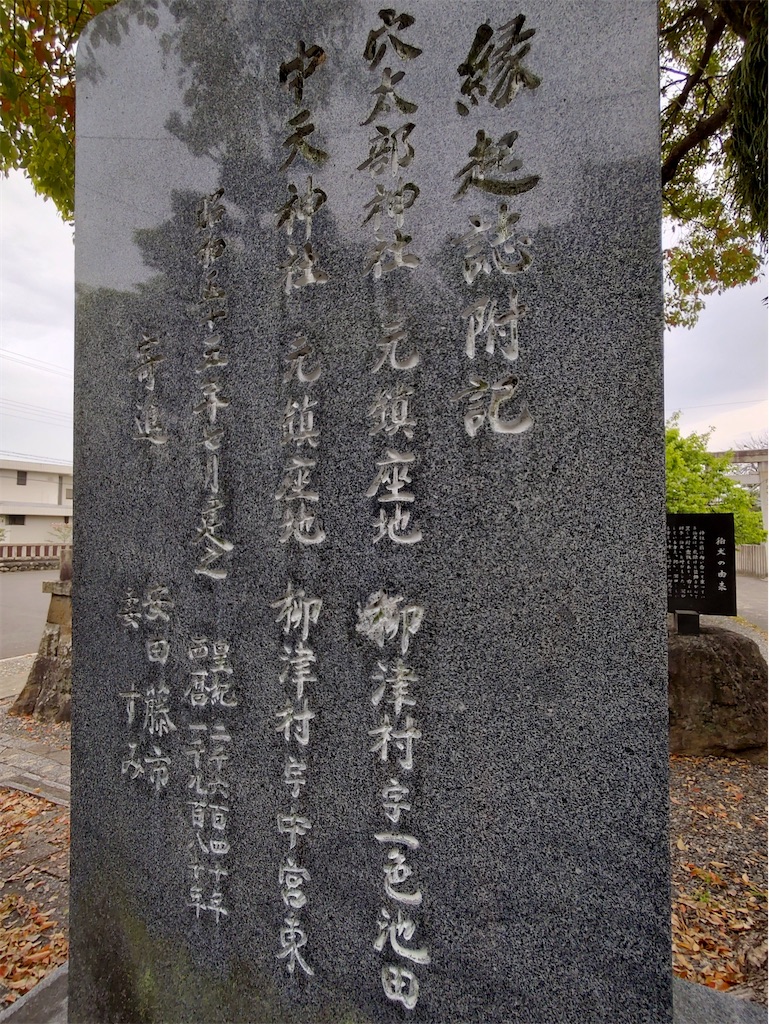 縁起誌附記
穴太部神社 元鎮座地 柳津村字一色池田
中天神社 元鎮座地 柳津村字中宮東
昭和五十五年七月建之
皇紀二千六百四十年
西暦一千九百八十年
寄進 安田藤市
妻 すみ
狛犬の由来